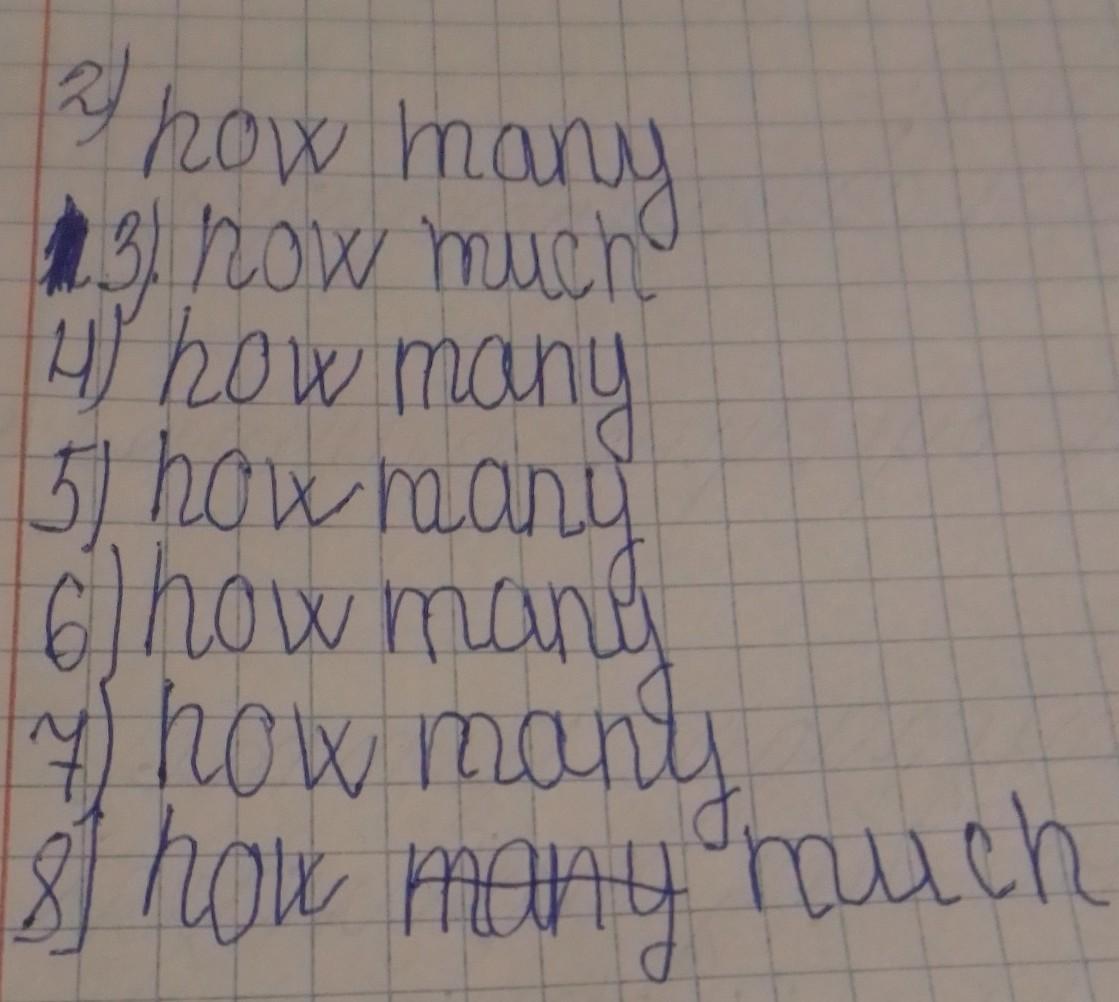 2) how many
3). how much
4) how many
5) how many
6) how many
7) how many
8) how many much